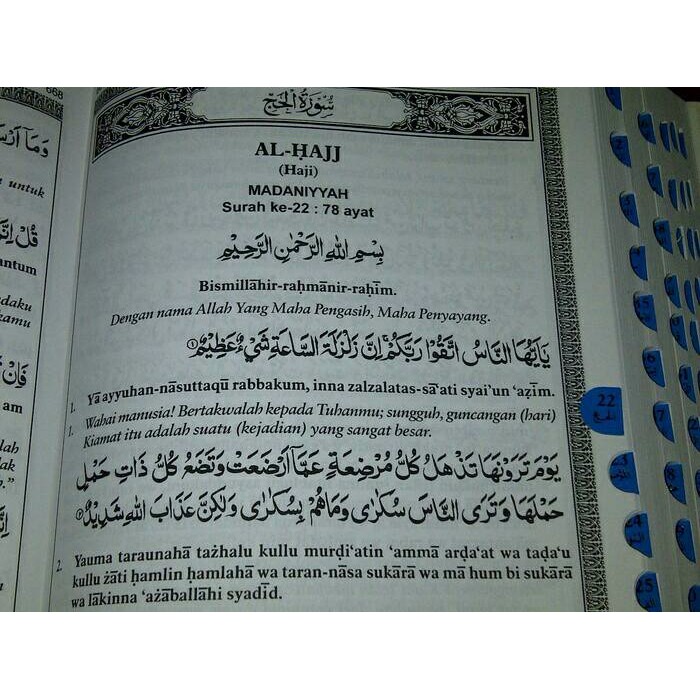 668
سُوْرَةُ الْحَجِّ
AL-ḤAJJ
(Haji)
MADANIYYAH
Surah ke-22 : 78 ayat
بِسْمِ اللّٰهِ الرَّحْمٰنِ الرَّحِيْمِ
Bismillāhir-raḥmānir-raḥīm.
Dengan nama Allah Yang Maha Pengasih, Maha Penyayang.
يٰٓاَيُّهَا النَّاسُ اتَّقُوْا رَبَّكُمْۚ اِنَّ زَلْزَلَةَ السَّاعَةِ شَيْءٌ عَظِيْمٌ ١
1. Yā ayyuhan-nāsuttaqū rabbakum, inna zalzalatas-sā‘ati syai'un ‘aẓīm.
1. Wahai manusia! Bertakwalah kepada Tuhanmu; sungguh, guncangan (hari)
Kiamat itu adalah suatu (kejadian) yang sangat besar.
يَوْمَ تَرَوْنَهَا تَذْهَلُ كُلُّ مُرْضِعَةٍ عَمَّآ اَرْضَعَتْ وَتَضَعُ كُلُّ ذَاتِ حَمْلٍ
حَمْلَهَا وَتَرَى النَّاسَ سُكٰرٰى وَمَا هُمْ بِسُكٰرٰى وَلٰكِنَّ عَذَابَ اللّٰهِ شَدِيْدٌ ٢
2. Yauma taraunahā tażhalu kullu murḍi‘atin ‘ammā arḍa‘at wa taḍa‘u
kullu żāti ḥamlin ḥamlahā wa taran-nāsa sukārā wa mā hum bi sukārā
wa lākinna ‘ażāballāhi syadīd.
وَمَآ اَرْسَ
untuk
قُلْ اِنَّ
antum
daku
kamu
فَاِنْ
am
lah
ak
."
22
الحج
23
24
25